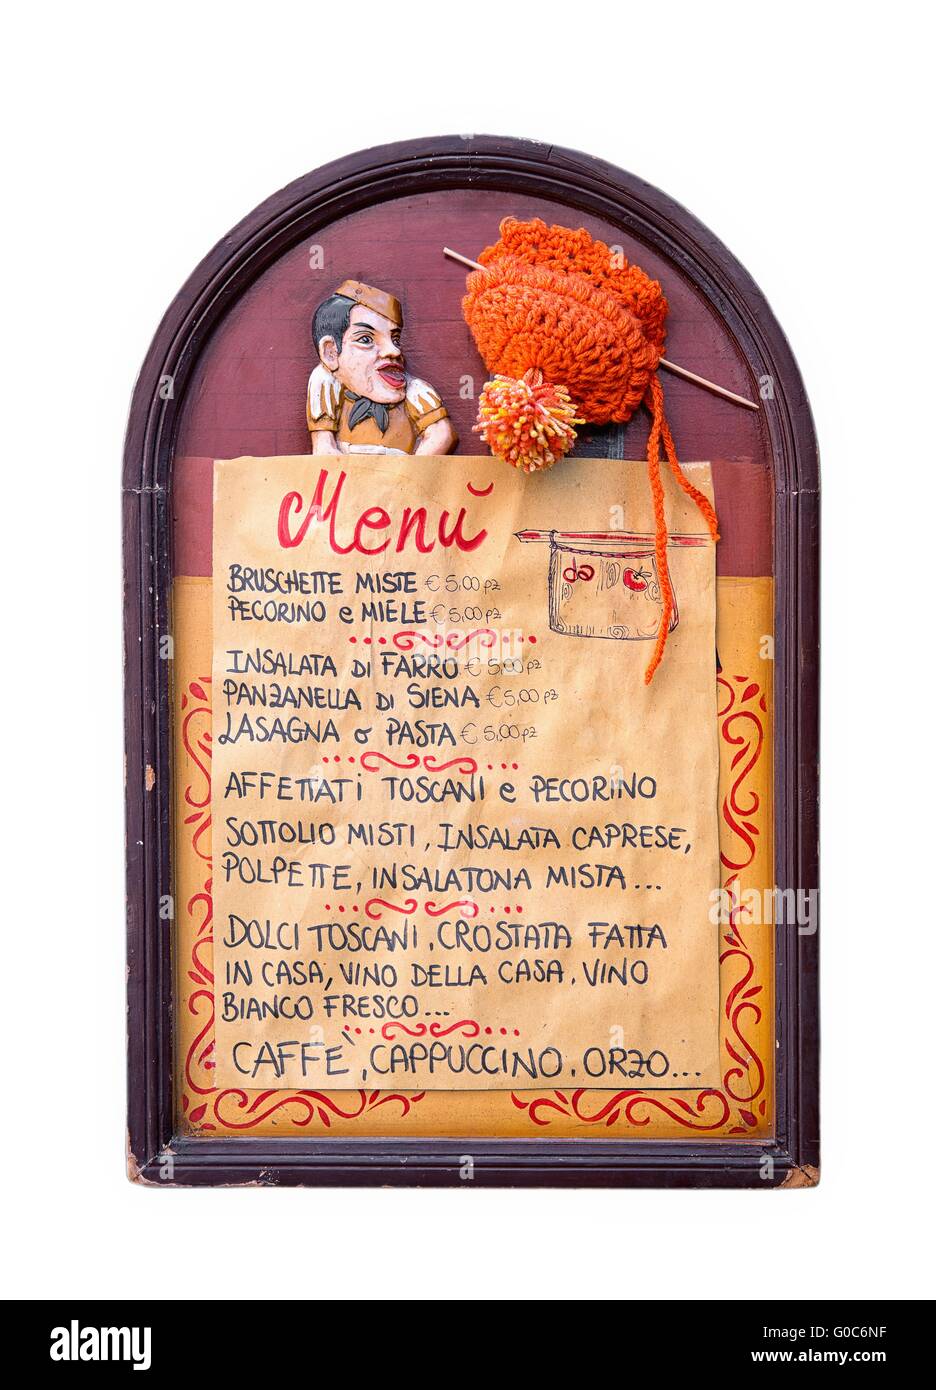 Menŭ
BRUSCHETTE MISTE € 5,00 pz
PECORINO e MIELE € 5,00 pz
da
INSALATA DI FARRO € 5,00 pz
PANZANELLA DI SIENA € 5,00 pz
LASAGNA o PASTA € 5,00 pz
AFFETTATI TOSCANI e PECORINO
SOTTOLIO MISTI, INSALATA CAPRESE,
POLPETTE, INSALATONA MISTA...
DOLCI TOSCANI, CROSTATA FATTA
IN CASA, VINO DELLA CASA, VINO
BIANCO FRESCO...
CAFFE', CAPPUCCINO, ORZO...
alamy stock photo
G0C6NF
www.alamy.com